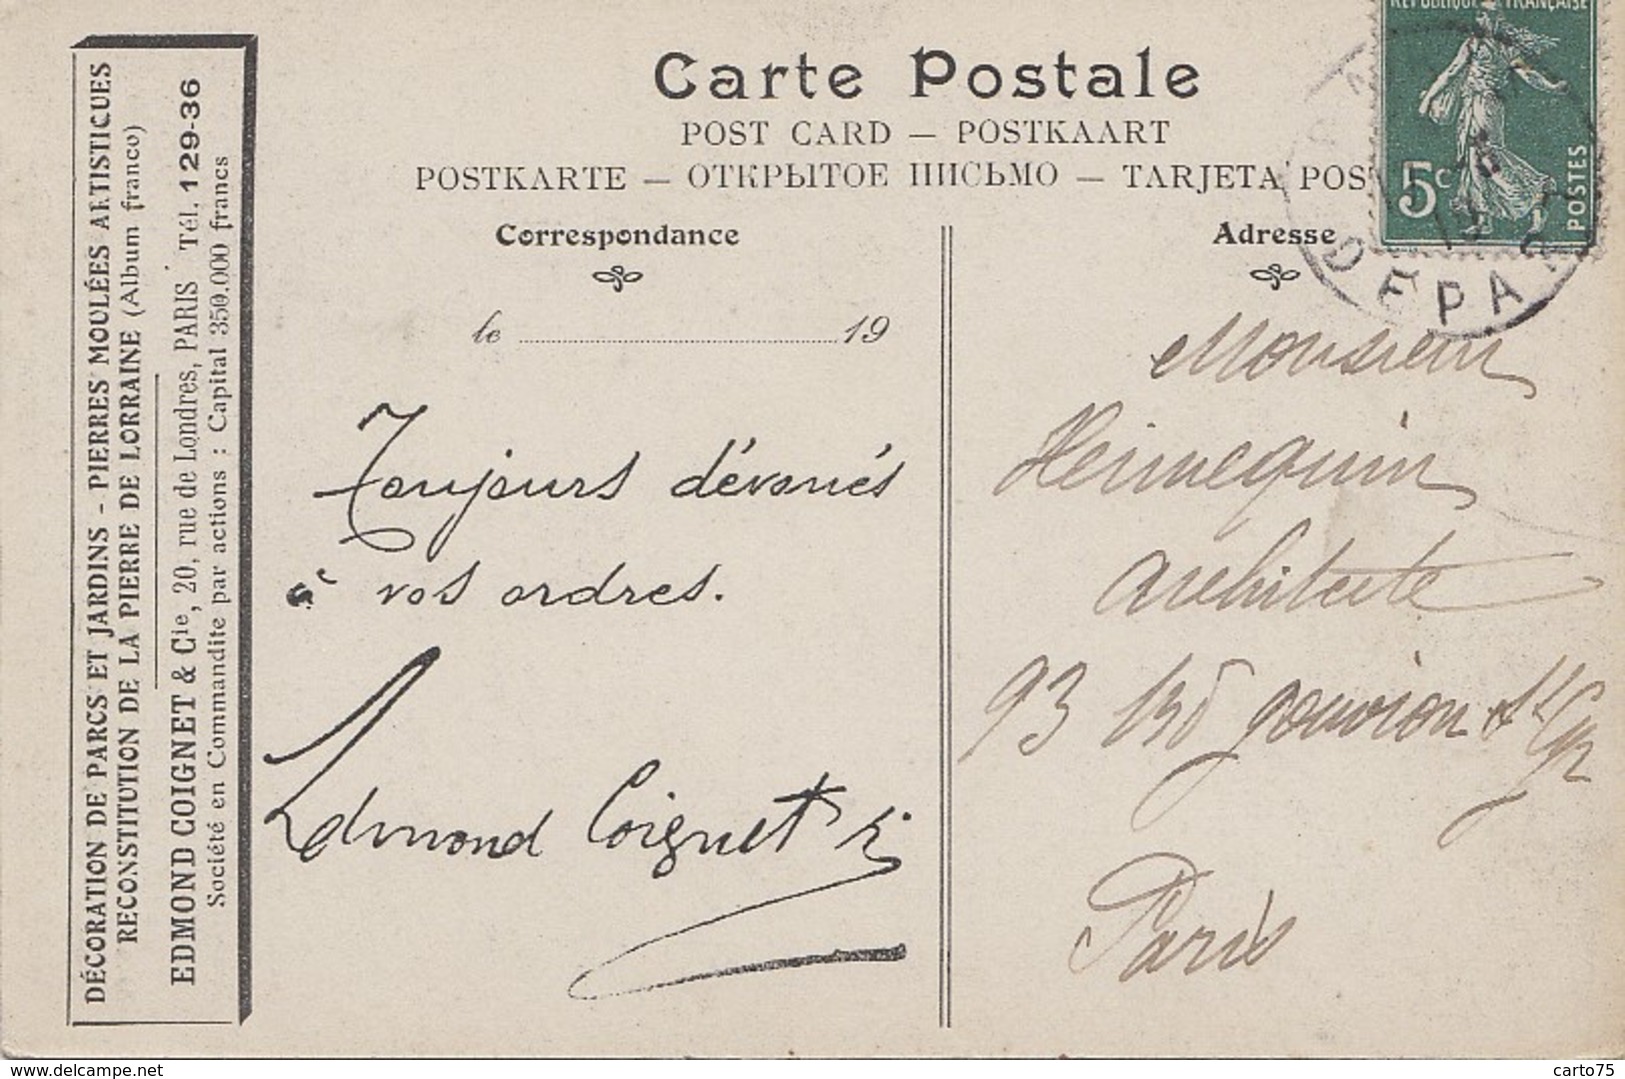 DÉCORATION DE PARCS ET JARDINS - PIERRES MOULÉES ARTISTIQUES
RECONSTITUTION DE LA PIERRE DE LORRAINE (Album franco)
EDMOND COIGNET & Cie, 20, rue de Londres, PARIS Tél. 129-36
Société en Commandite par actions : Capital 350.000 francs
Carte Postale
POST CARD — POSTKAART
POSTKARTE — ОТКРЫТОЕ ПИСЬМО — TARJETA POS
RÉPUBLIQUE FRANÇAISE
5c
POSTES
DEPA
Correspondance
le 19
Toujours dévoués
à vos ordres.
Edmond Coignet
Adresse
Monsieur
Hennequin
Architecte
93 Bd gouvion St Cyr
Paris
delcampe.net
carto75